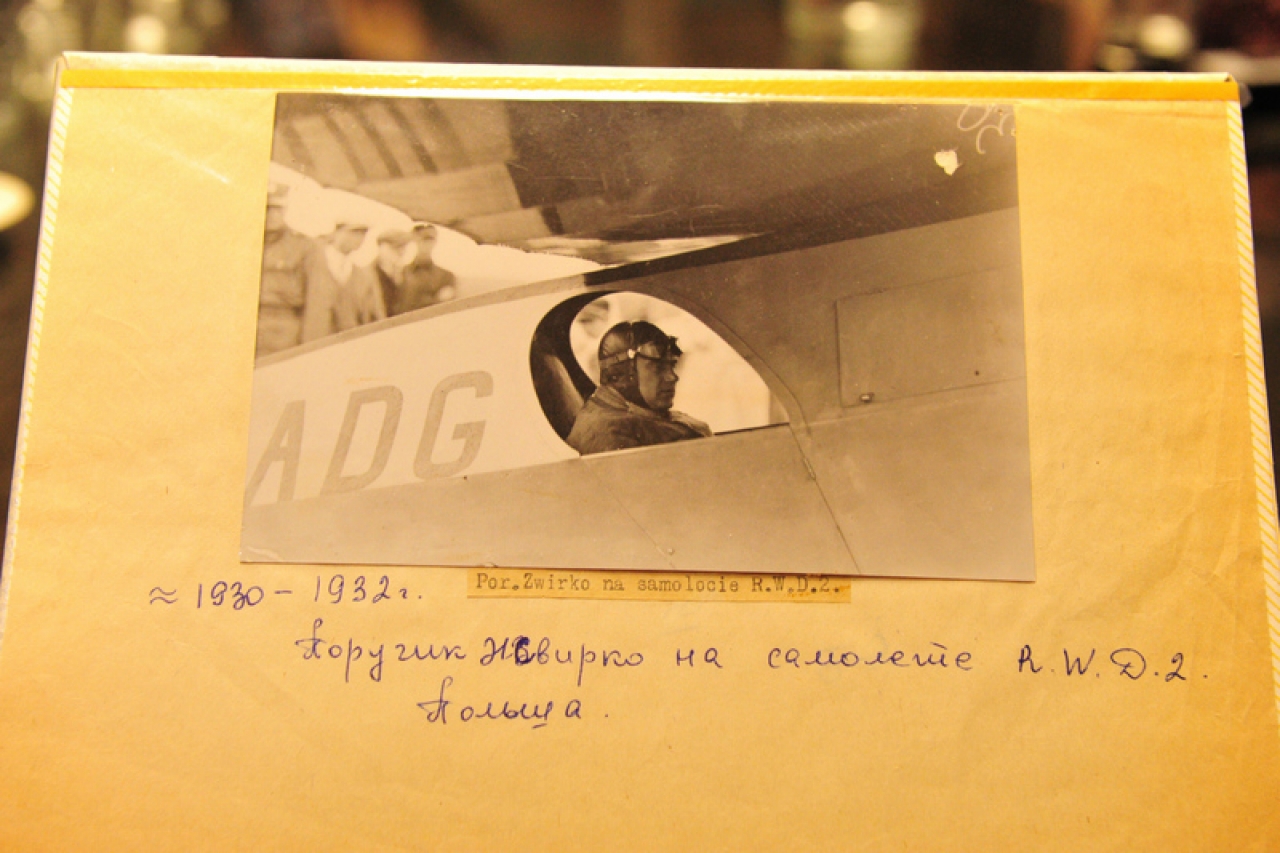 ADG
Por.Zwirko na samolocie R.W.D.2.
≈ 1930 – 1932 г.
Поручик Жвирко на самолете R.W.D.2.
Польша.